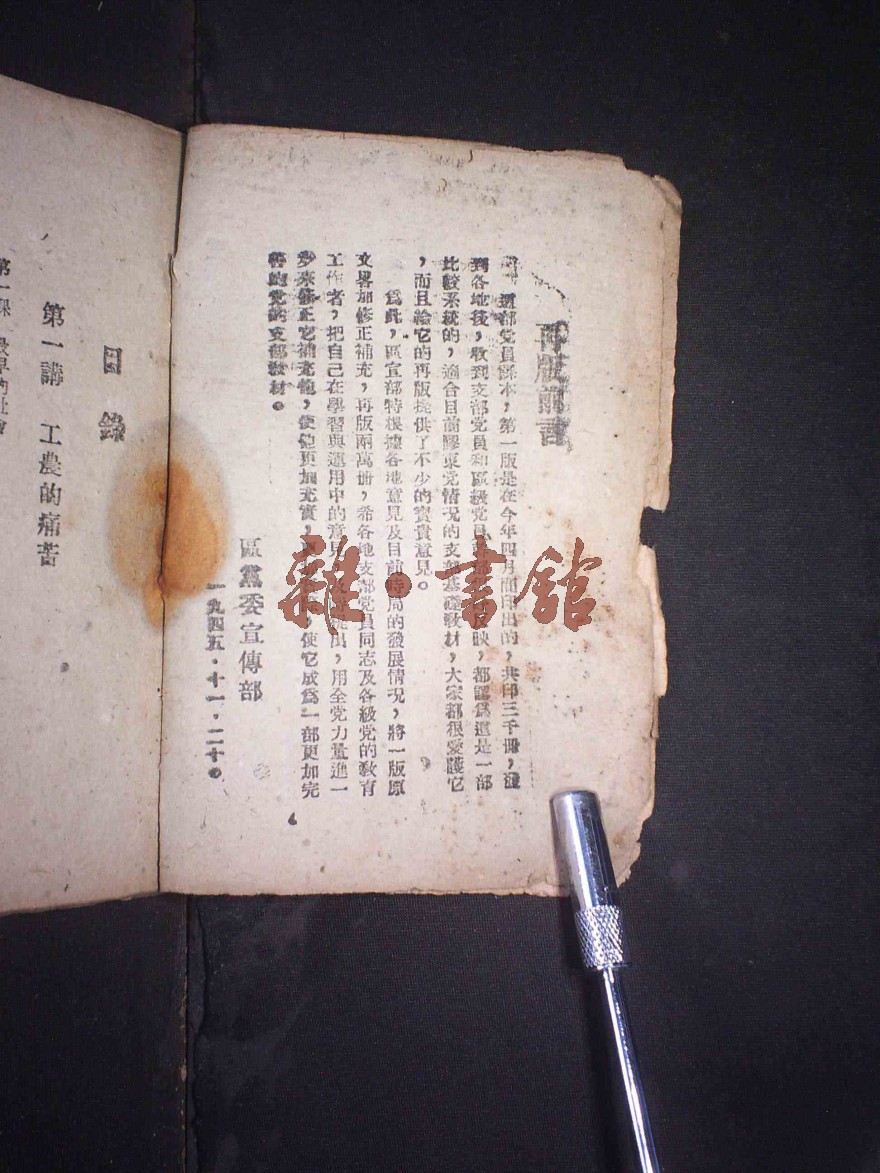 再版前言
這部党員課本，第一版是在今年四月間印出的，共印三千冊，發
到各地後，收到支部党員和區級党員
反映，都認爲這是一部
比較系統的，適合目前膠東党情况的支部基礎教材，大家都很愛護它
，而且給它的再版提供了不少的寶貴意見。
爲此，區宣部特根據各地意見及目前時局的發展情况，將一版原
文畧加修正補充，再版兩萬册，希各地支部党員同志及各級党的教育
工作者，把自己在學習與運用中的意見
提出，用全党力量進一
步來修正它補充他，使他更加充實，
使它成爲一部更加完
善的党的支部教材。
區黨委宣傳部
一九四五·十一·二十。
目錄
第一講 工農的痛苦
第一課 最早的社會
雜·書舘